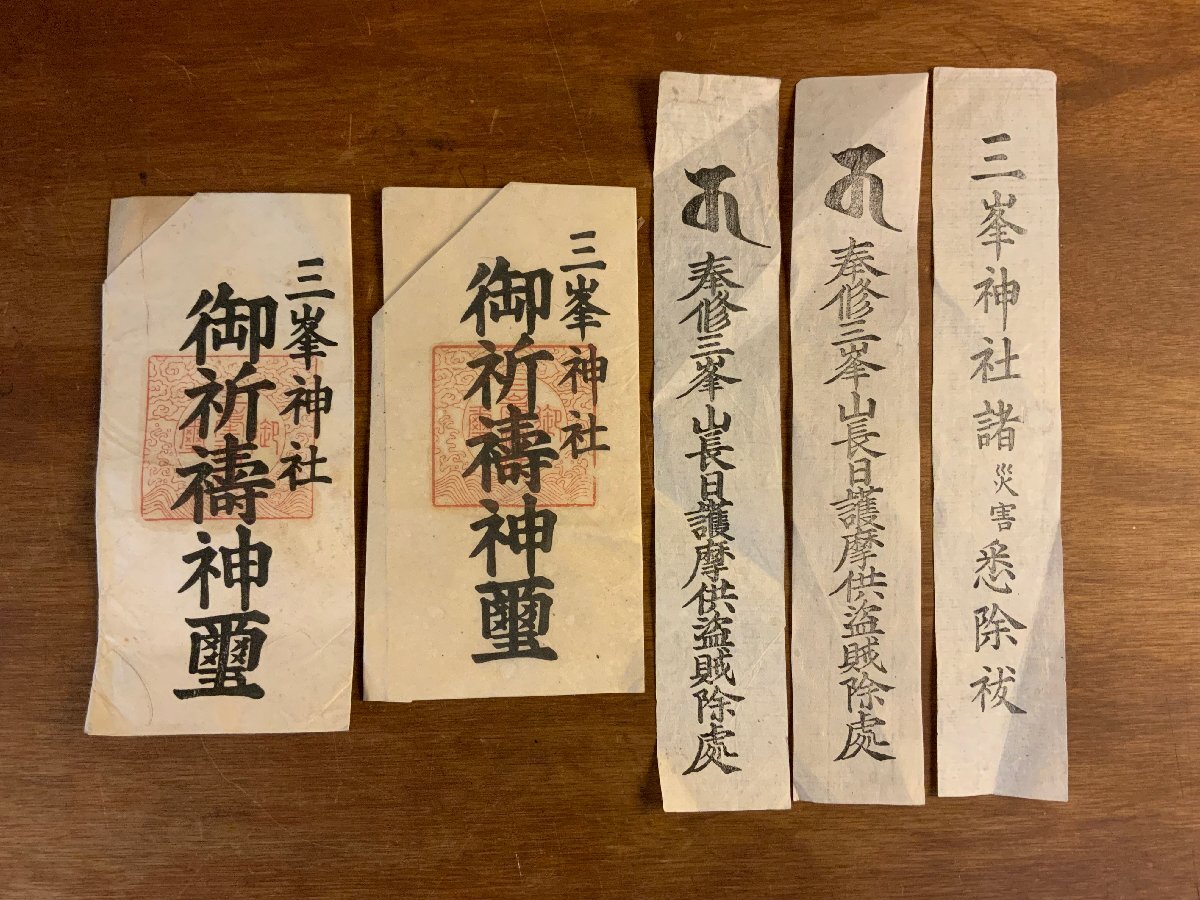 三峯神社諸災害悉除祓
奉修三峯山長日護摩供盗賊除處
奉修三峯山長日護摩供盗賊除處
三峯神社
御祈禱神璽
三峯神社
御祈禱神璽